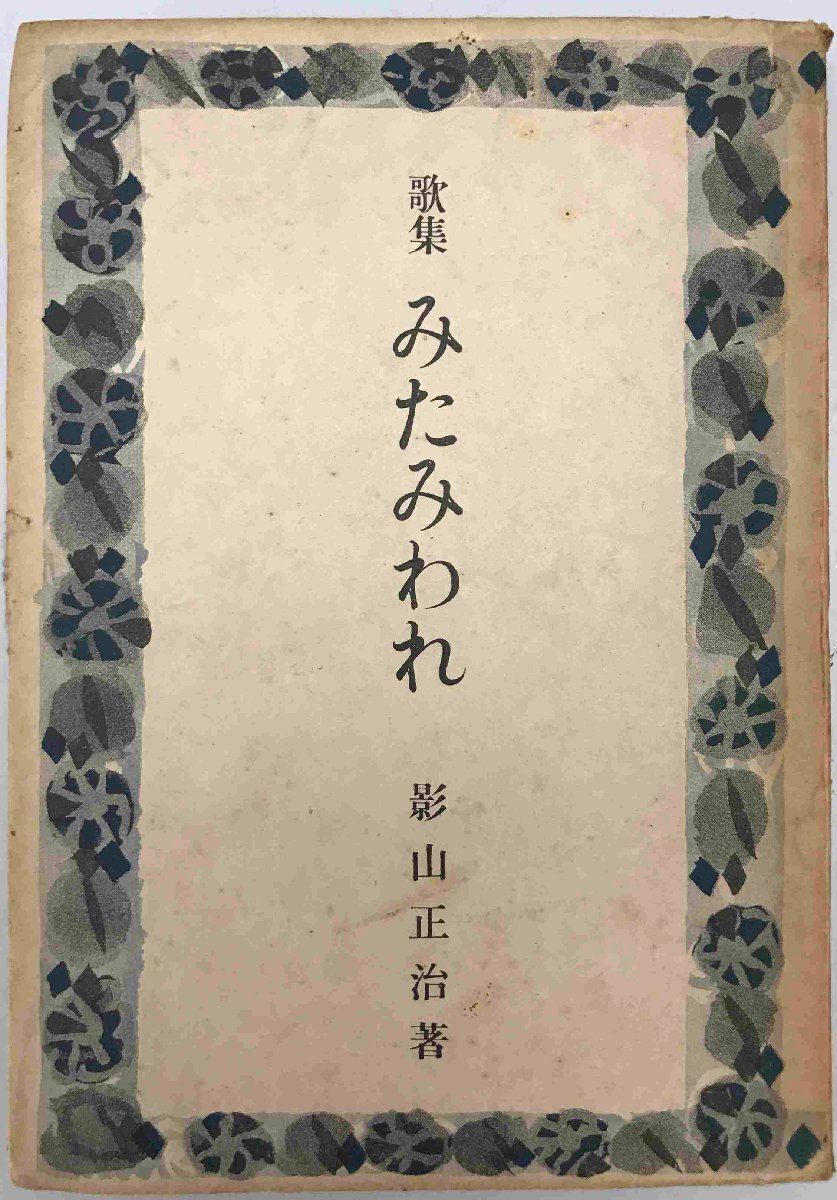 歌集 みたみわれ 影山正治著